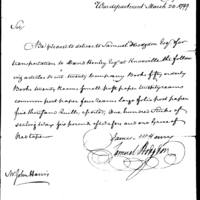 Wardepartment March 20. 1799
Sir,
Be pleased to deliver to Samuel Hodgdon Esqr for
transportation to David Henley Esqr at Knoxville the follow
ing articles to wit. twenty Company Books fifty orderly
Books twenty Reams foolscap paper twenty reams
common post paper four reams large folio post paper
five thousand Quills, and one hundred sticks of
sealing wax six and one Gross of
Red tape
James McHenry
Samuel Hodgdon
Mr. John Harris